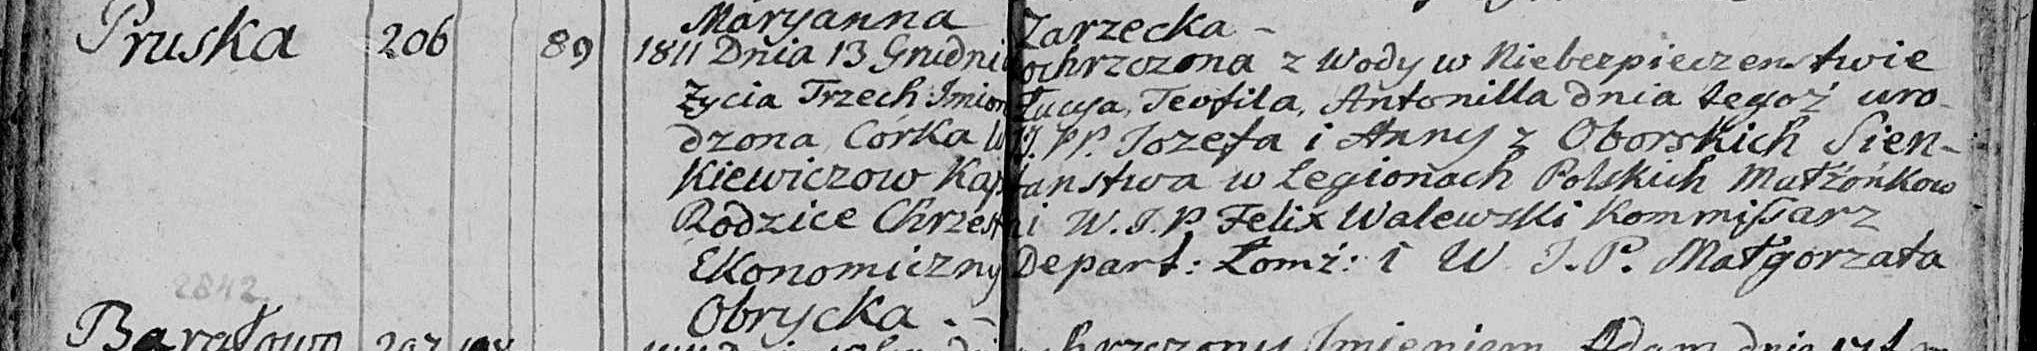 Maryanna Zarzecka -
Pruska 206 89 1811 Dnia 13 Grudnia ochrzczona z Wody w Niebezpieczenstwie
Życia Trzech Imion Łucya, Teofila, Antonilla dnia tegoż uro-
dzona, Córka W. J. PP. Jozefa i Anny z Oborskich Sien-
kiewiczow Kapitanstwa w Legionach Polskich Małżonkow
Rodzice Chrzestni W. J. P. Felix Walewski Kommissarz
Ekonomiczny Depart: Łomż: i W J. P. Małgorzata
2842
Obrycka . -
207 Imieniem Adam dnia